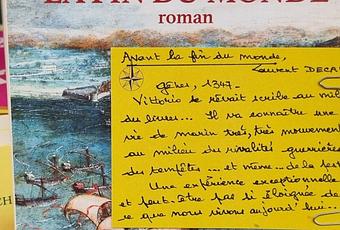 LA FIN DU MONDE
roman
Avant la fin du monde,
Laurent DECA
Gênes, 1347.
Vittorio se rêvait scribe au mil
du livres... Il va connaître une
vie de marin très, très mouvemen
au milieu du rivalités guerrières
du tempêtes ... et même... de la pes
Une expérience exceptionnelle
et peut-être pas si éloignée de
ce que nous vivons aujourd'hui...
CH